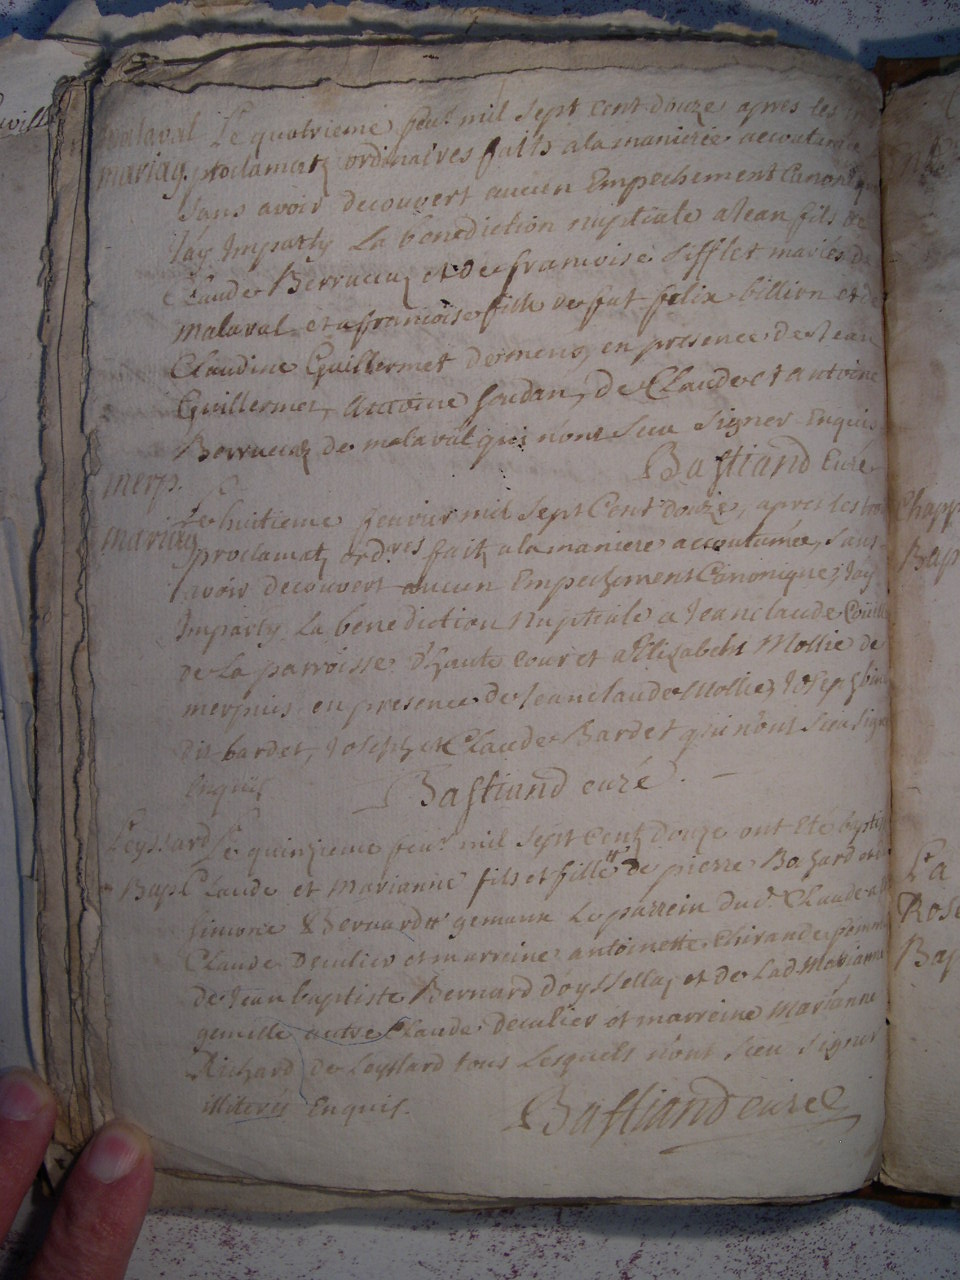 malaval Le quatrieme feur mil sept cent douze apres les
mariag proclamatz ordinaires faits a la maniere accoutumee
sans avoir decouvert aucun Empechement Canonique
Jay Imparty La benediction nuptiale a Jean fils de
Claude Berrueiaz et de francoise sifflet mariés de
malaval et a francoise fille de fut felix billion et de
Claudine Guillermet dermeng en presence de Jean
Guillermet, Antoine soudan, de Claude et antoine
Berrueiaz de malaval qui n'ont sceu signer Enquis
Bastiand Curé
merp.
Le huitieme feuvrier mil sept Cent douze, apres les trois
mariag proclamatz ordres faitz a la maniere accoutumée, sans
avoir decouvert aucun Empechement Canonique, Jay
Imparty La benediction Nuptiale a Jean claude
de La parroisse d'haute cour et a Elizabeht Mollie de
merpuis en presence de Jean claude Mollie, Joseph
dit bardet, Joseph et Claude Bardet qui n'ont sceu signer
Enquis Bastiand curé
Leyssard Le quinzieme feur mil sept Centz douze ont eté baptises
Bap. Claude et Marianne fils et fille de pierre Bozard et de
simone Bernard gemaux Le parrein du d. Claude a eté
Claude Deculier et marreine antoinette Chirande femme
de Jean baptiste Bernard d'oyssellaz et de La d Marianne
gemelle autre Claude deculier et marreine Marianne
Richard de Leyssard tous Lesquels n'ont sceu signer
illiterés Enquis. Bastiand curé